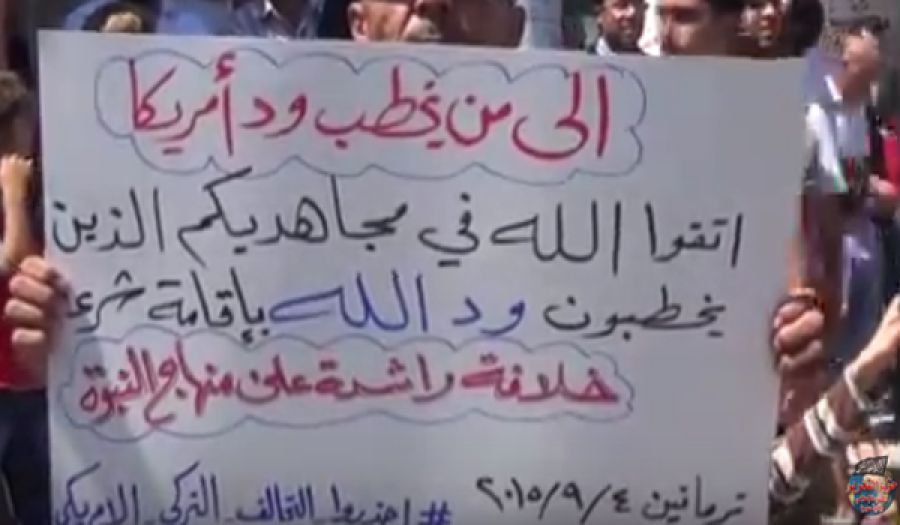 الى من يخطب ود أمريكا
اتقوا الله في مجاهديكم الذين
يخطبون ود الله بإقامة شرعه
خلافة راشدة على منهاج النبوة
ترمانين ٢٠١٥/٩/٤
#احذروا_التحالف_التركي_الامريكي